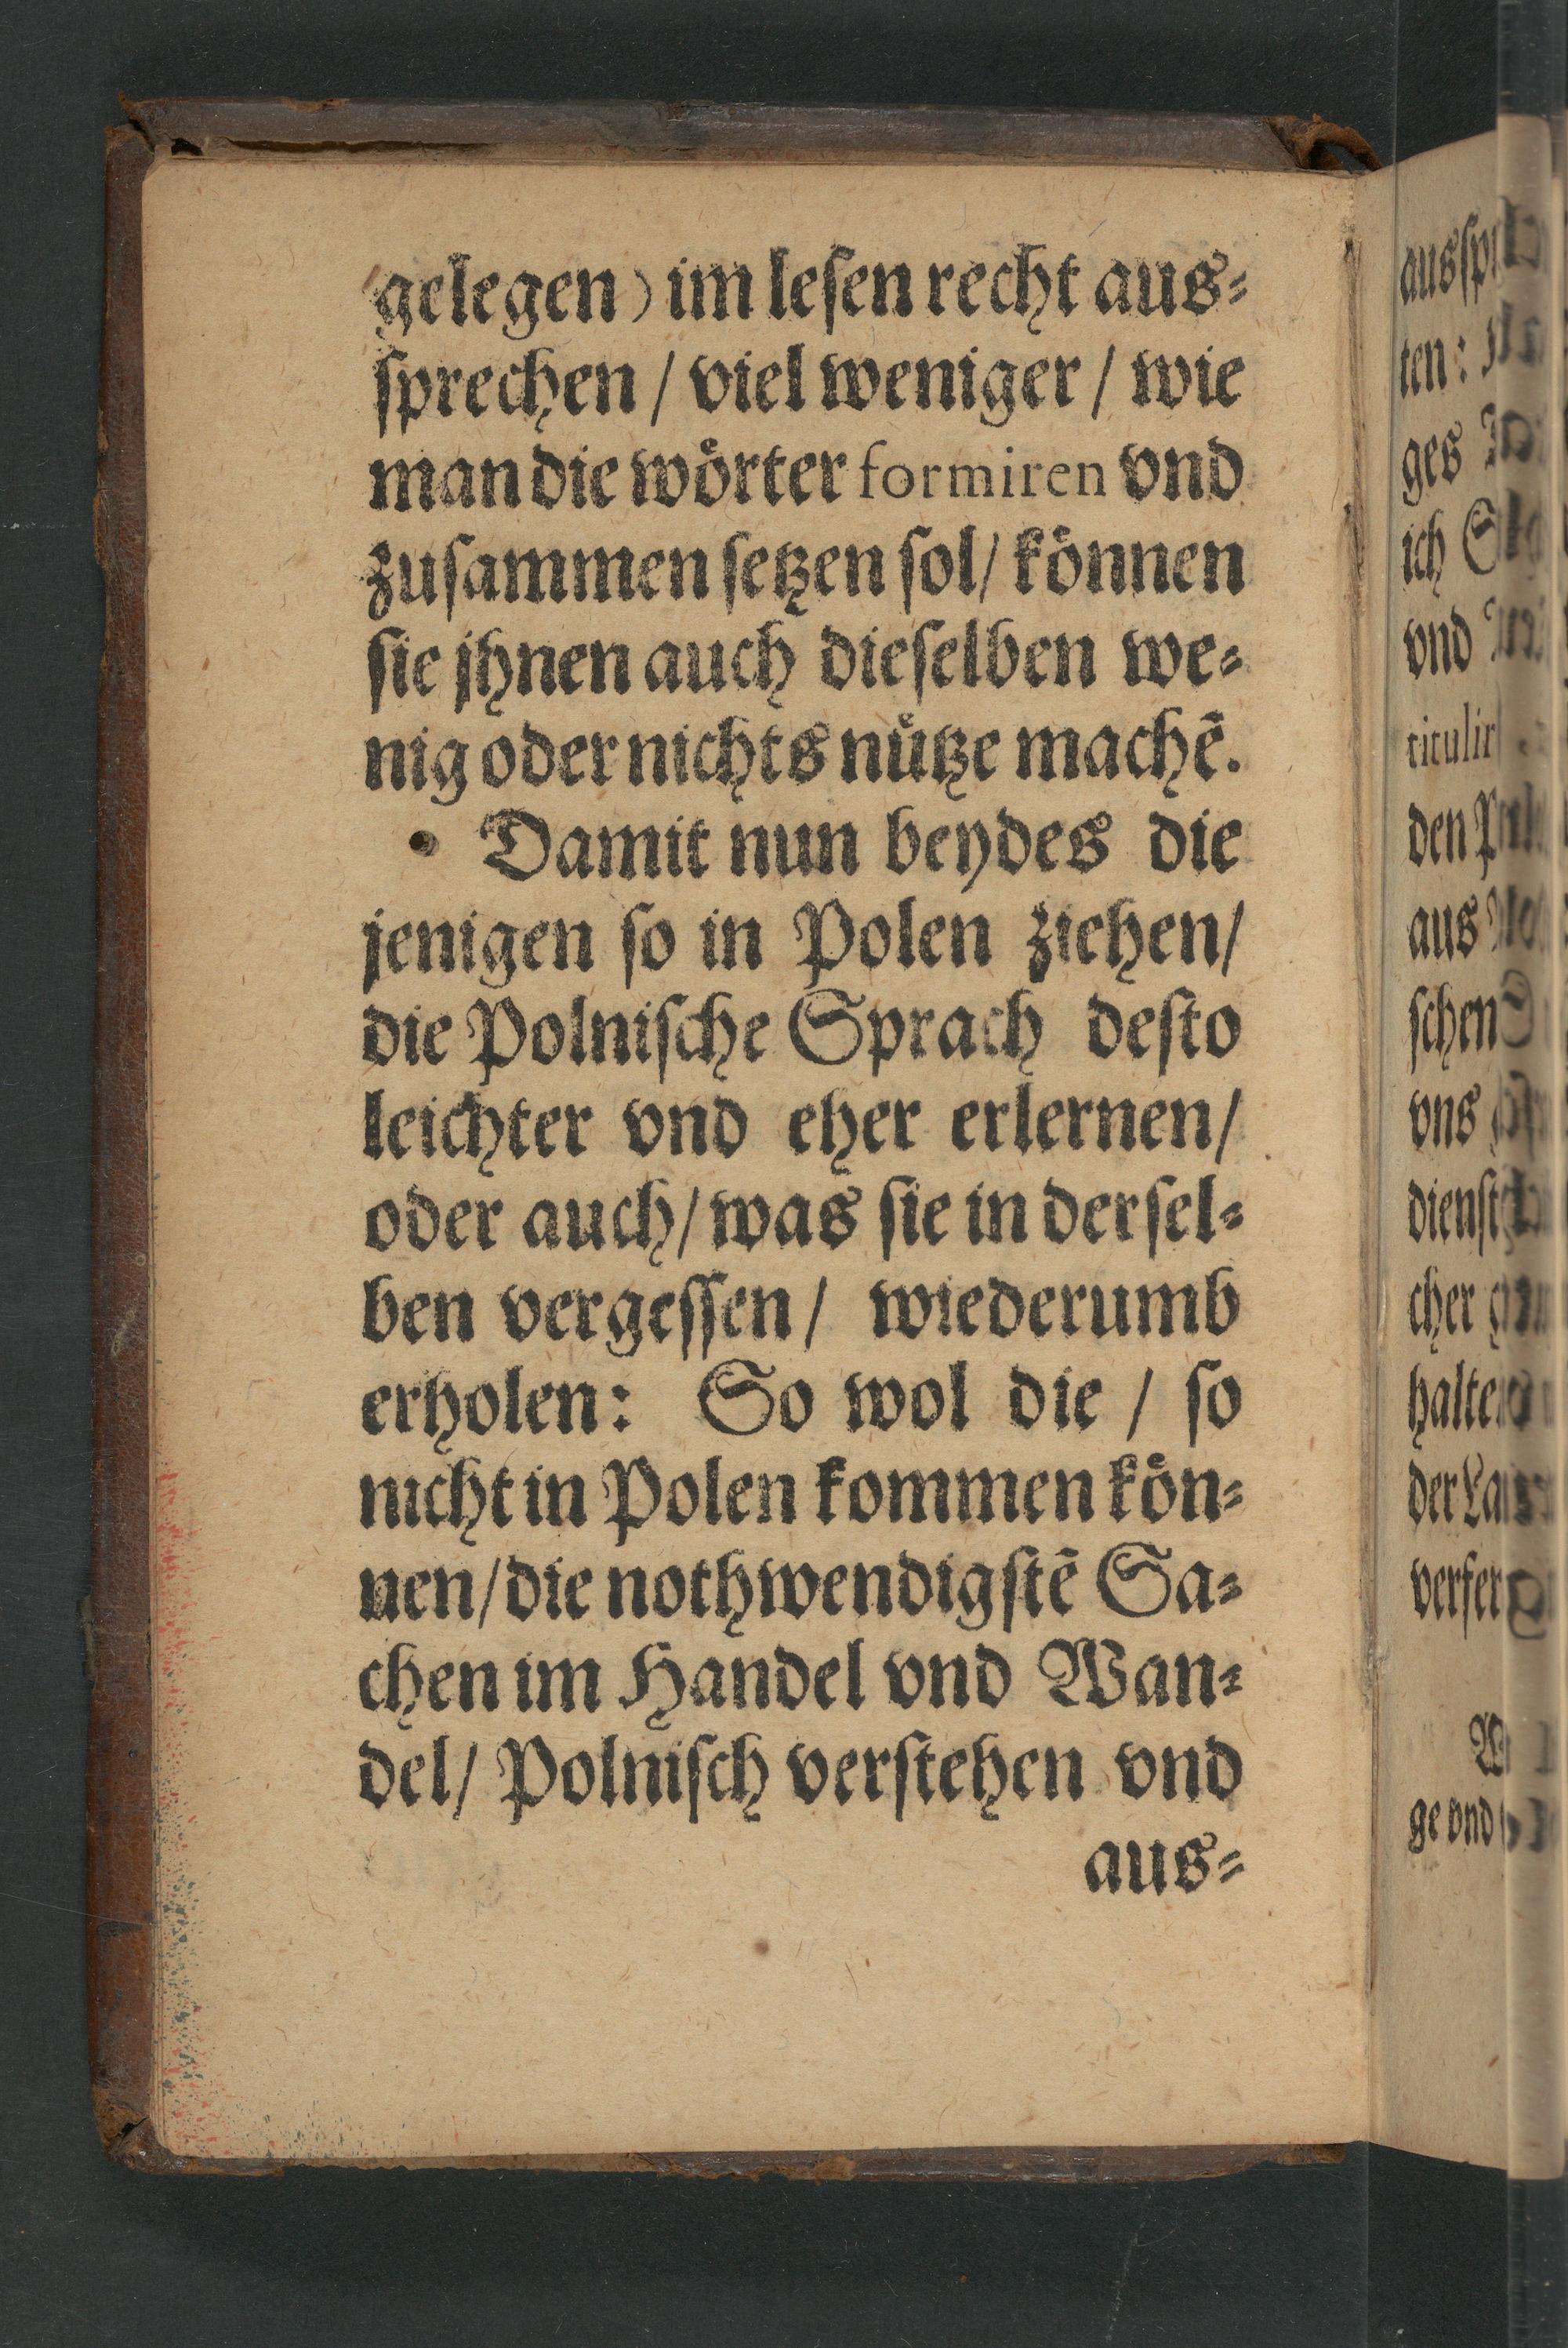 gelegen) im leſen recht aus⸗
ſprechen / viel weniger / wie
man die woͤrter formiren vnd
zuſammen ſetzen ſol / koͤnnen
ſie jhnen auch dieſelben we⸗
nig oder nichts nuͤtze machẽ.
Damit nun beydes die
jenigen ſo in Polen ziehen /
die Polniſche Sprach deſto
leichter vnd eher erlernen /
oder auch / was ſie in derſel⸗
ben vergeſſen / wiederumb
erholen: So wol die / ſo
nicht in Polen kommen koͤn⸗
nen / die nothwendigſtẽ Sa⸗
chen im Handel vnd Wan⸗
del / Polniſch verſtehen vnd
aus⸗
ten:
ges
ich
vnd
aus
vns
cher
ge vnd